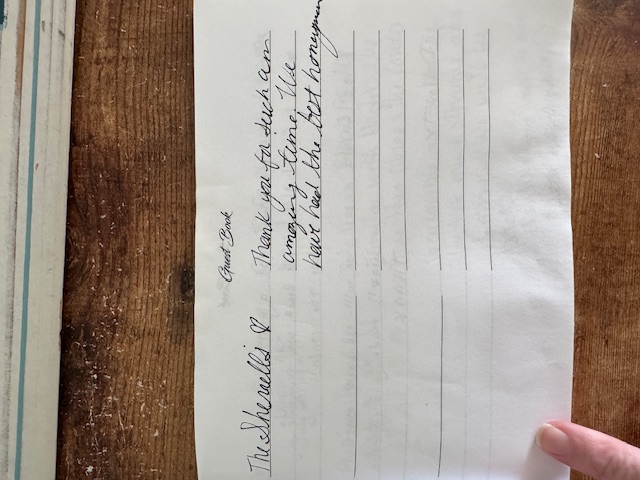 Guest Book
Thank you for such an
amazing time. We
have had the best honeymoon
The